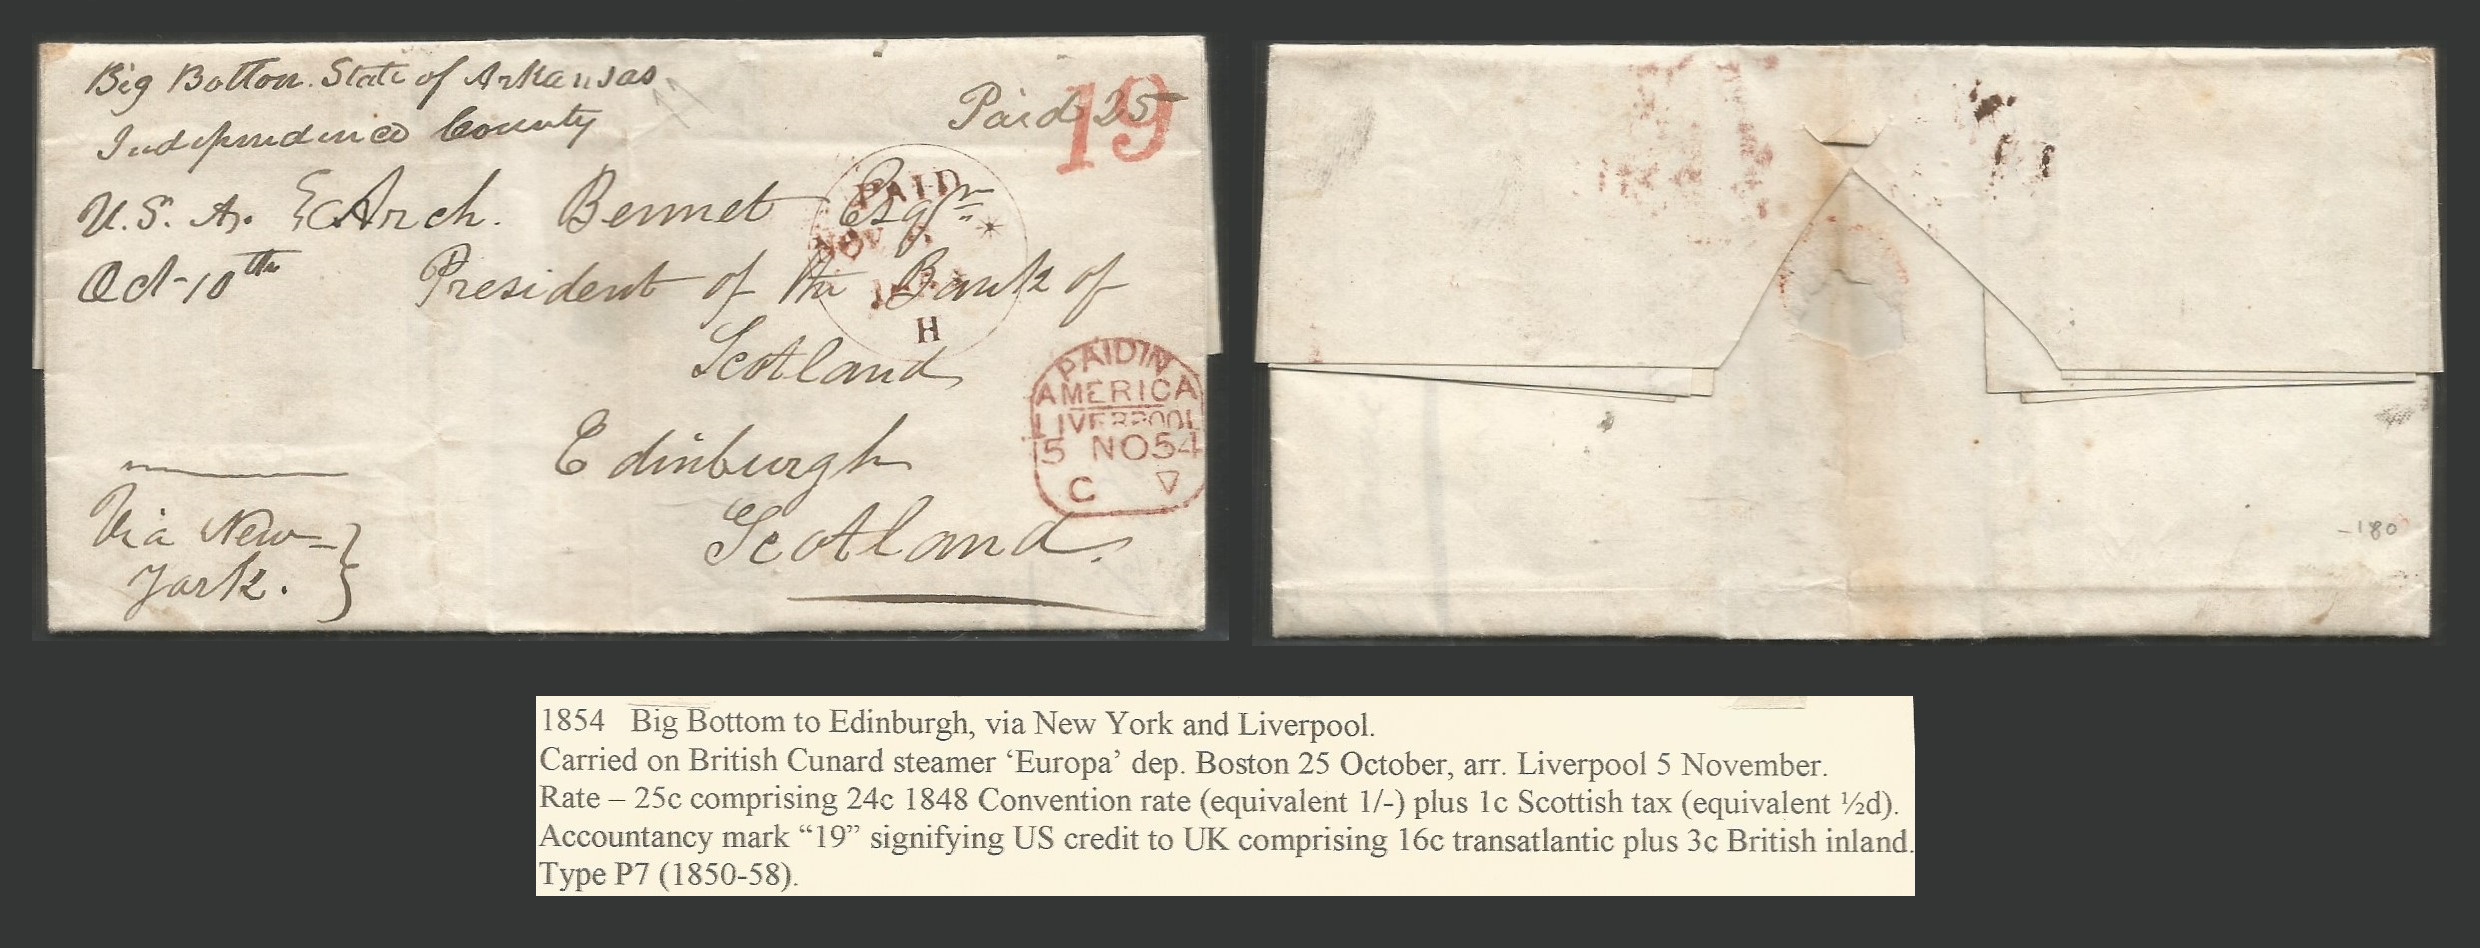 Big Bottom. State of Arkansas
Independence County
U.S. A.
Oct-10th
Paid 25
19
Arch. Bennet Esqr
President of the Bank of
Scotland
Edinburgh
Scotland.
Via New-
York.
PAID
NOV
H
PAID IN
AMERICA
LIVERPOOL
5 NO 54
C
-180
1854 Big Bottom to Edinburgh, via New York and Liverpool.
Carried on British Cunard steamer ‘Europa’ dep. Boston 25 October, arr. Liverpool 5 November.
Rate – 25c comprising 24c 1848 Convention rate (equivalent 1/-) plus 1c Scottish tax (equivalent ½d).
Accountancy mark “19” signifying US credit to UK comprising 16c transatlantic plus 3c British inland.
Type P7 (1850-58).